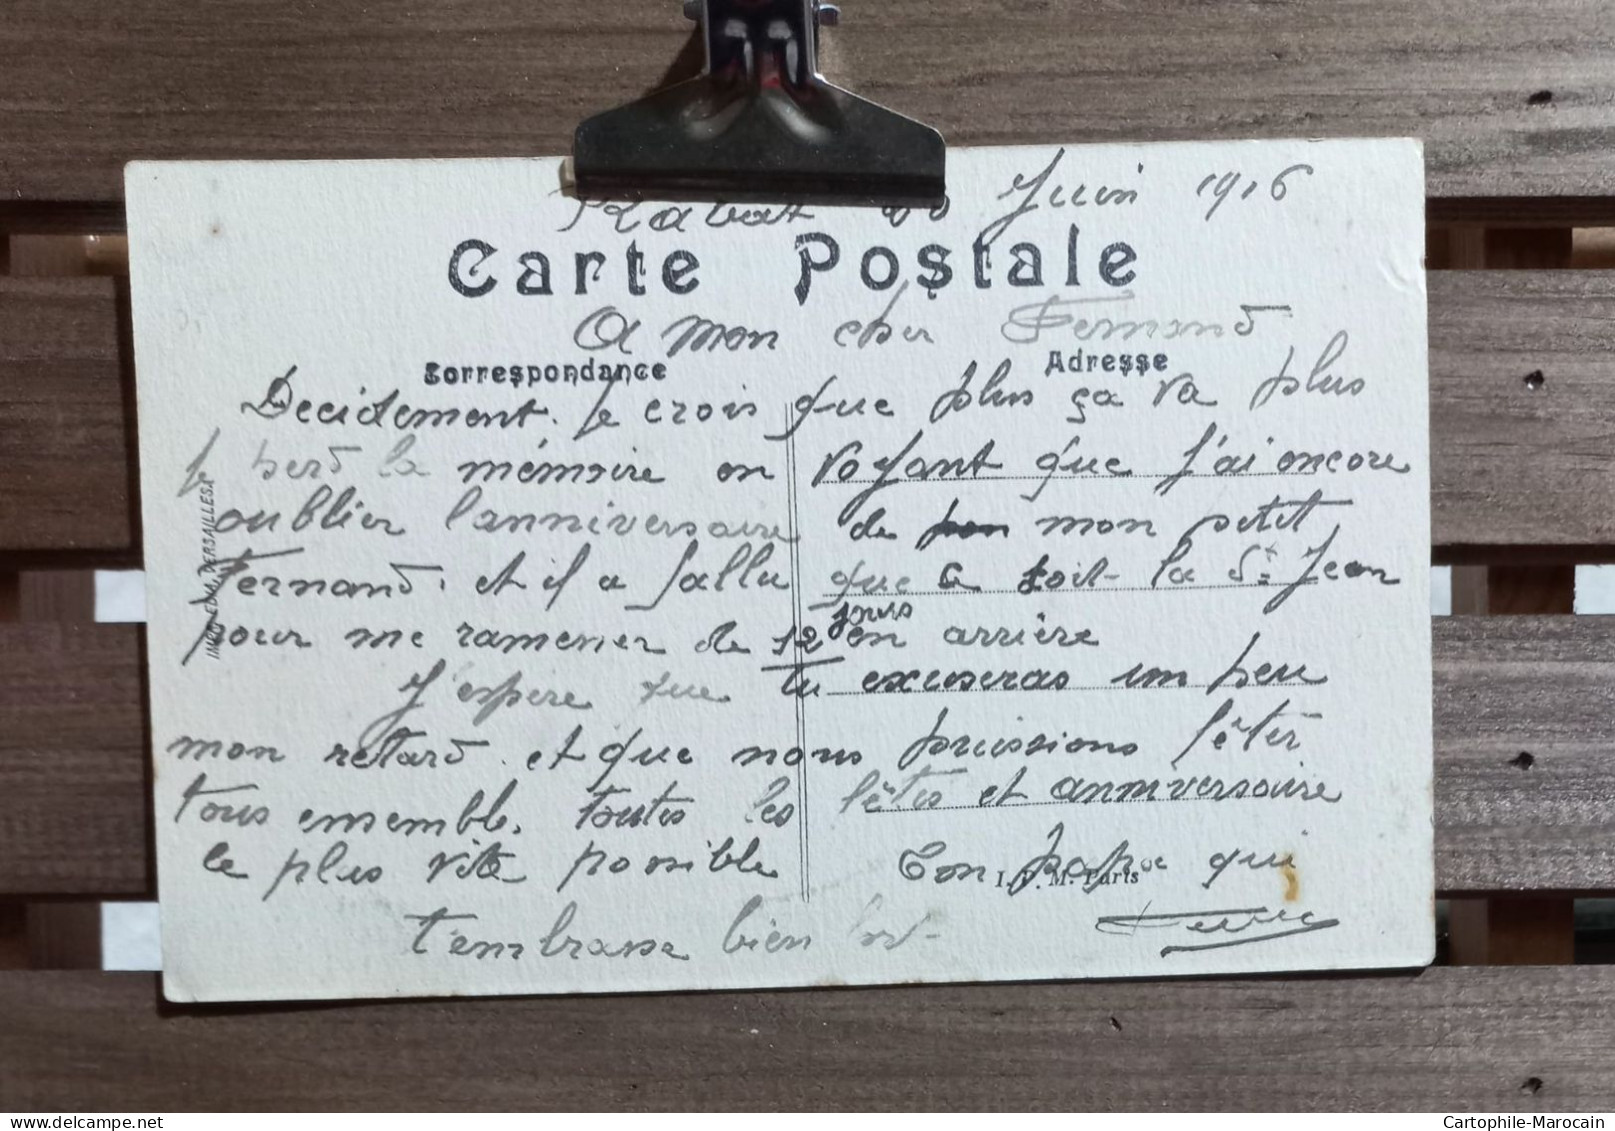 Rabat Juin 1916
Carte Postale
A mon cher Fernand
Correspondance
Adresse
Decidement. Je crois que plus ça va plus
je perd la mémoire en voyant que j'ai encore
oublier l'anniversaire de mon petit
Fernand. et il a fallu que ce soit la St Jean
pour me ramener de 12 jours en arrière
J'espere que tu excuseras un peu
mon retard. et que nous puissions fêter
tous ensemble. toutes les fêtes et anniversaire
le plus vite possible
Ton papa qui
I. P. M. Paris
t'embrasse bien fort-
IMP. EDIA VERSAILLES
Cartophile-Marocain